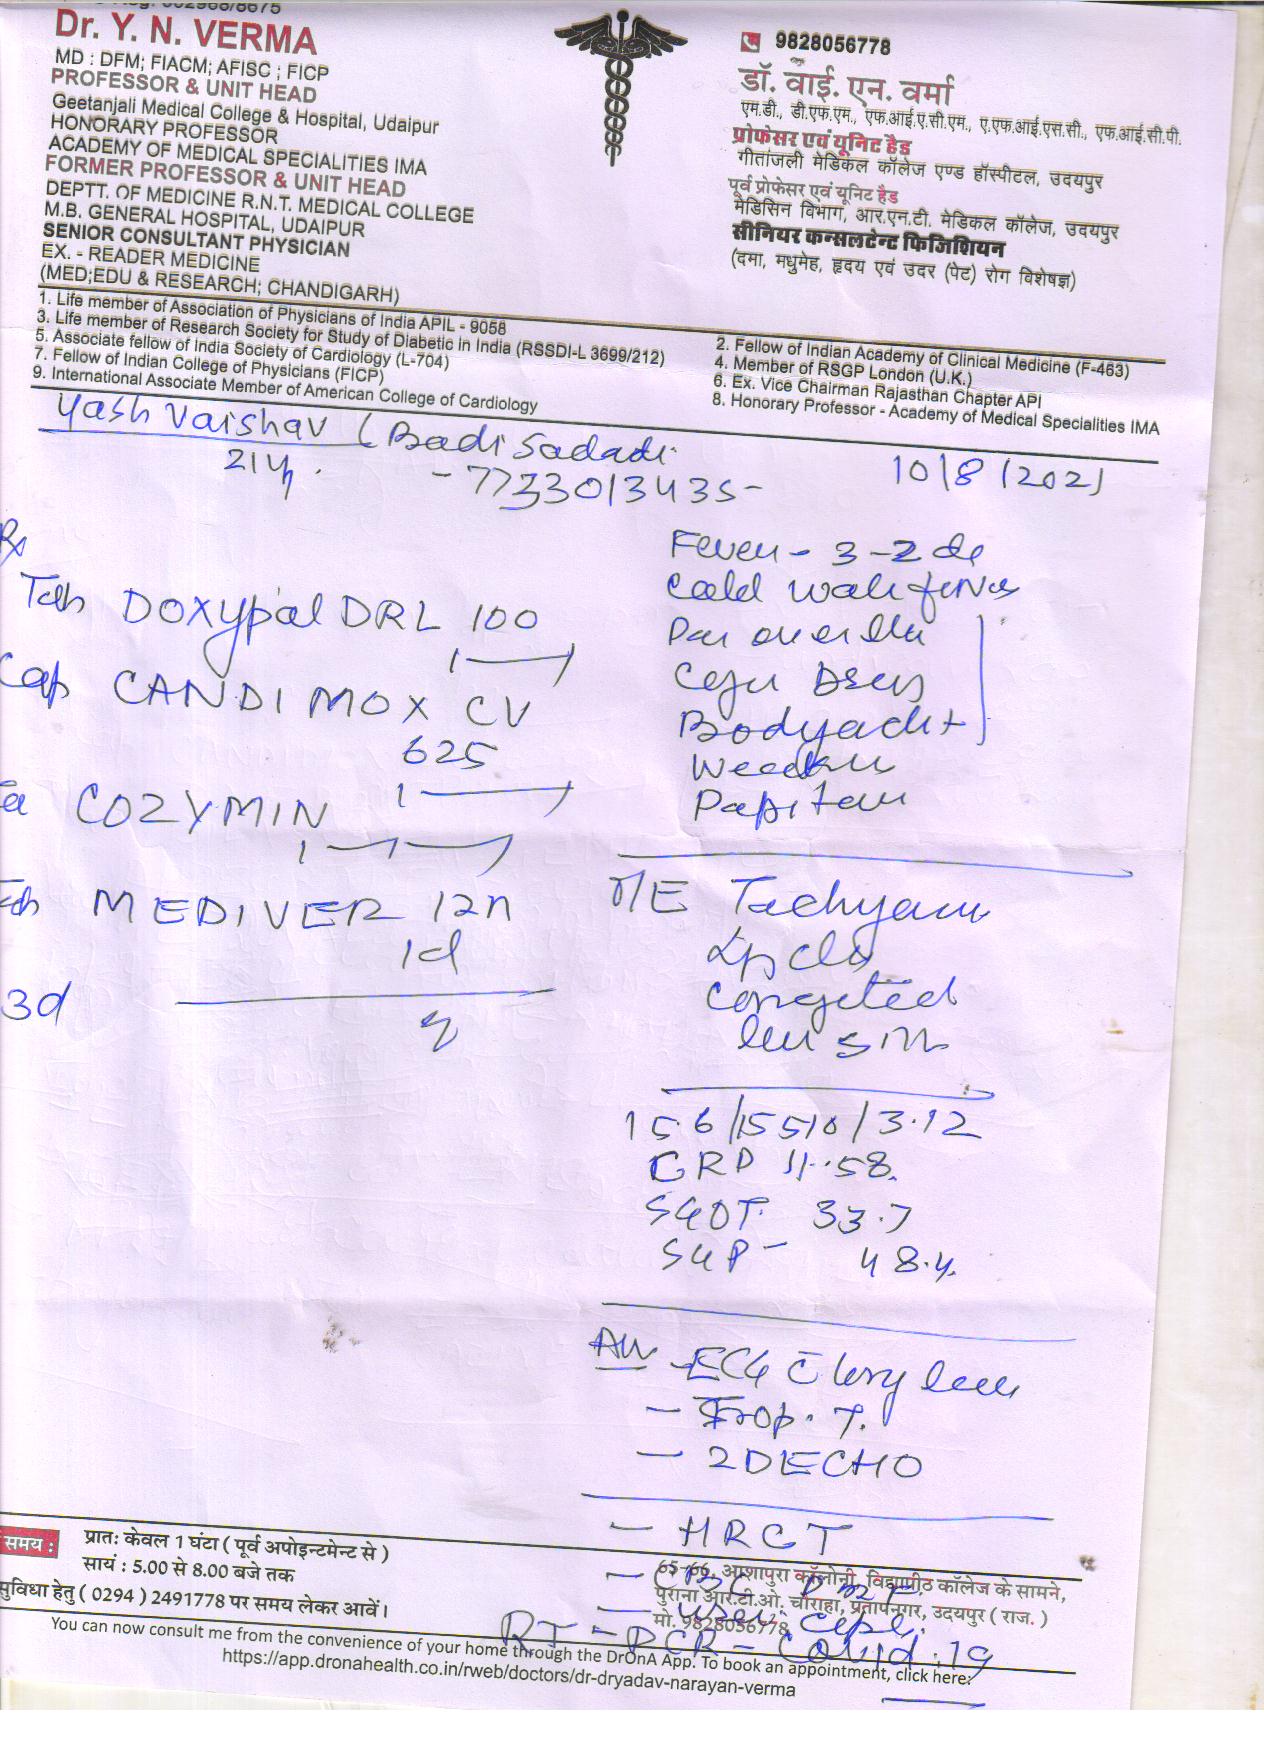 Dr. Y. N. VERMA
MD : DFM; FIACM; AFISC ; FICP
PROFESSOR & UNIT HEAD
Geetanjali Medical College & Hospital, Udaipur
HONORARY PROFESSOR
ACADEMY OF MEDICAL SPECIALITIES IMA
FORMER PROFESSOR & UNIT HEAD
DEPTT. OF MEDICINE R.N.T. MEDICAL COLLEGE
M.B. GENERAL HOSPITAL, UDAIPUR
SENIOR CONSULTANT PHYSICIAN
EX. - READER MEDICINE
(MED;EDU & RESEARCH; CHANDIGARH)
9828056778
डॉ. वाई. एन. वर्मा
एम.डी., डी.एफ.एम., एफ.आई.ए.सी.एम., ए.एफ.आई.एस.सी., एफ.आई.सी.पी.
प्रोफेसर एवं यूनिट हैड
गीतांजली मेडिकल कॉलेज एण्ड हॉस्पीटल, उदयपुर
पूर्व प्रोफेसर एवं यूनिट हैड
मेडिसिन विभाग, आर.एन.टी. मेडिकल कॉलेज, उदयपुर
सीनियर कन्सलटेन्ट फिजिशियन
(दमा, मधुमेह, हृदय एवं उदर (पेट) रोग विशेषज्ञ)
1. Life member of Association of Physicians of India APIL - 9058
3. Life member of Research Society for Study of Diabetic in India (RSSDI-L 3699/212)
5. Associate fellow of India Society of Cardiology (L-704)
7. Fellow of Indian College of Physicians (FICP)
9. International Associate Member of American College of Cardiology
2. Fellow of Indian Academy of Clinical Medicine (F-463)
4. Member of RSGP London (U.K.)
6. Ex. Vice Chairman Rajasthan Chapter API
8. Honorary Professor - Academy of Medical Specialities IMA
Yash Vaishav (Badi Sadadi
21y. - 7733013435-
10/8/2021
Rx
Tab DOXYpal DRL 100
1
Cap CANDIMOX CV
625
1
COZYMIN
1
MEDIVER 12n
1d
3d
Fever - 3-2 d
Cold
Bodyache
O/E
Congested
15.6/15510/3.12
CRP 11.58
SGOT. 33.7
SGP - 48.4
Adv - ECG
- Trop. T.
- 2DECHO
- HRCT
- CBC
RT-PCR - Covid.19
समय :
प्रातः केवल 1 घंटा ( पूर्व अपोइन्टमेन्ट से )
सायं : 5.00 से 8.00 बजे तक
सुविधा हेतु ( 0294 ) 2491778 पर समय लेकर आवें।
65-66, आशापुरा कॉलोनी, विद्यापीठ कॉलेज के सामने,
पुराना आर.टी.ओ. चौराहा, प्रतापनगर, उदयपुर ( राज. )
मो. 9828056778
You can now consult me from the convenience of your home through the DrOnA App. To book an appointment, click here:
https://app.dronahealth.co.in/rweb/doctors/dr-dryadav-narayan-verma